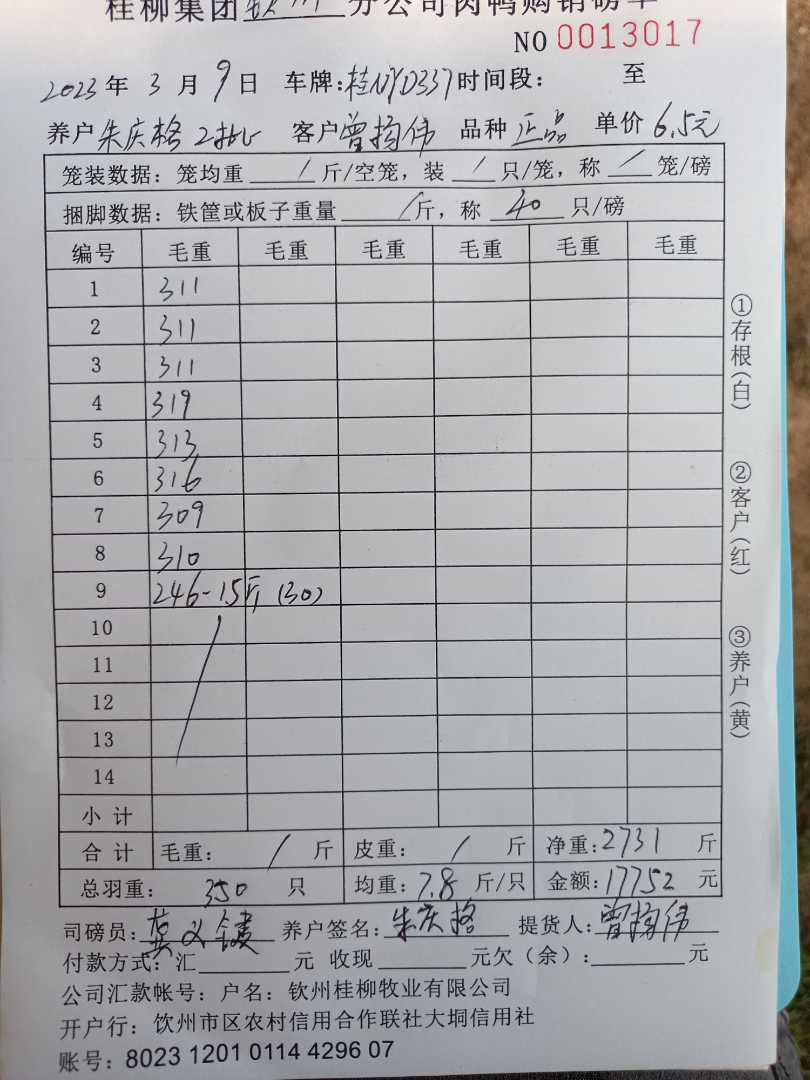 桂柳集团钦州分公司肉鸭购销磅单
NO 0013017
2023年 3 月 9 日 车牌:桂NYD337 时间段: 至
养户 朱庆格 2批 客户 曾扬伟 品种 正品 单价 6.5元
笼装数据: 笼均重 / 斤/空笼, 装 / 只/笼, 称 / 笼/磅
捆脚数据: 铁筐或板子重量 / 斤, 称 40 只/磅
编号 毛重 毛重 毛重 毛重 毛重 毛重
1 311
2 311
3 311
4 319
5 313
6 316
7 309
8 310
9 246-15斤 (30)
10
11
12
13
14
小计
合计 毛重: / 斤 皮重: / 斤 净重: 2731 斤
总羽重: 350 只 均重: 7.8 斤/只 金额: 17752 元
司磅员: 义 养户签名: 朱庆格 提货人: 曾扬伟
付款方式: 汇 元 收现 元欠(余): 元
公司汇款帐号: 户名: 钦州桂柳牧业有限公司
开户行: 钦州市区农村信用合作联社大垌信用社
账号: 8023 1201 0114 4296 07
①存根(白)
②客户(红)
③养户(黄)